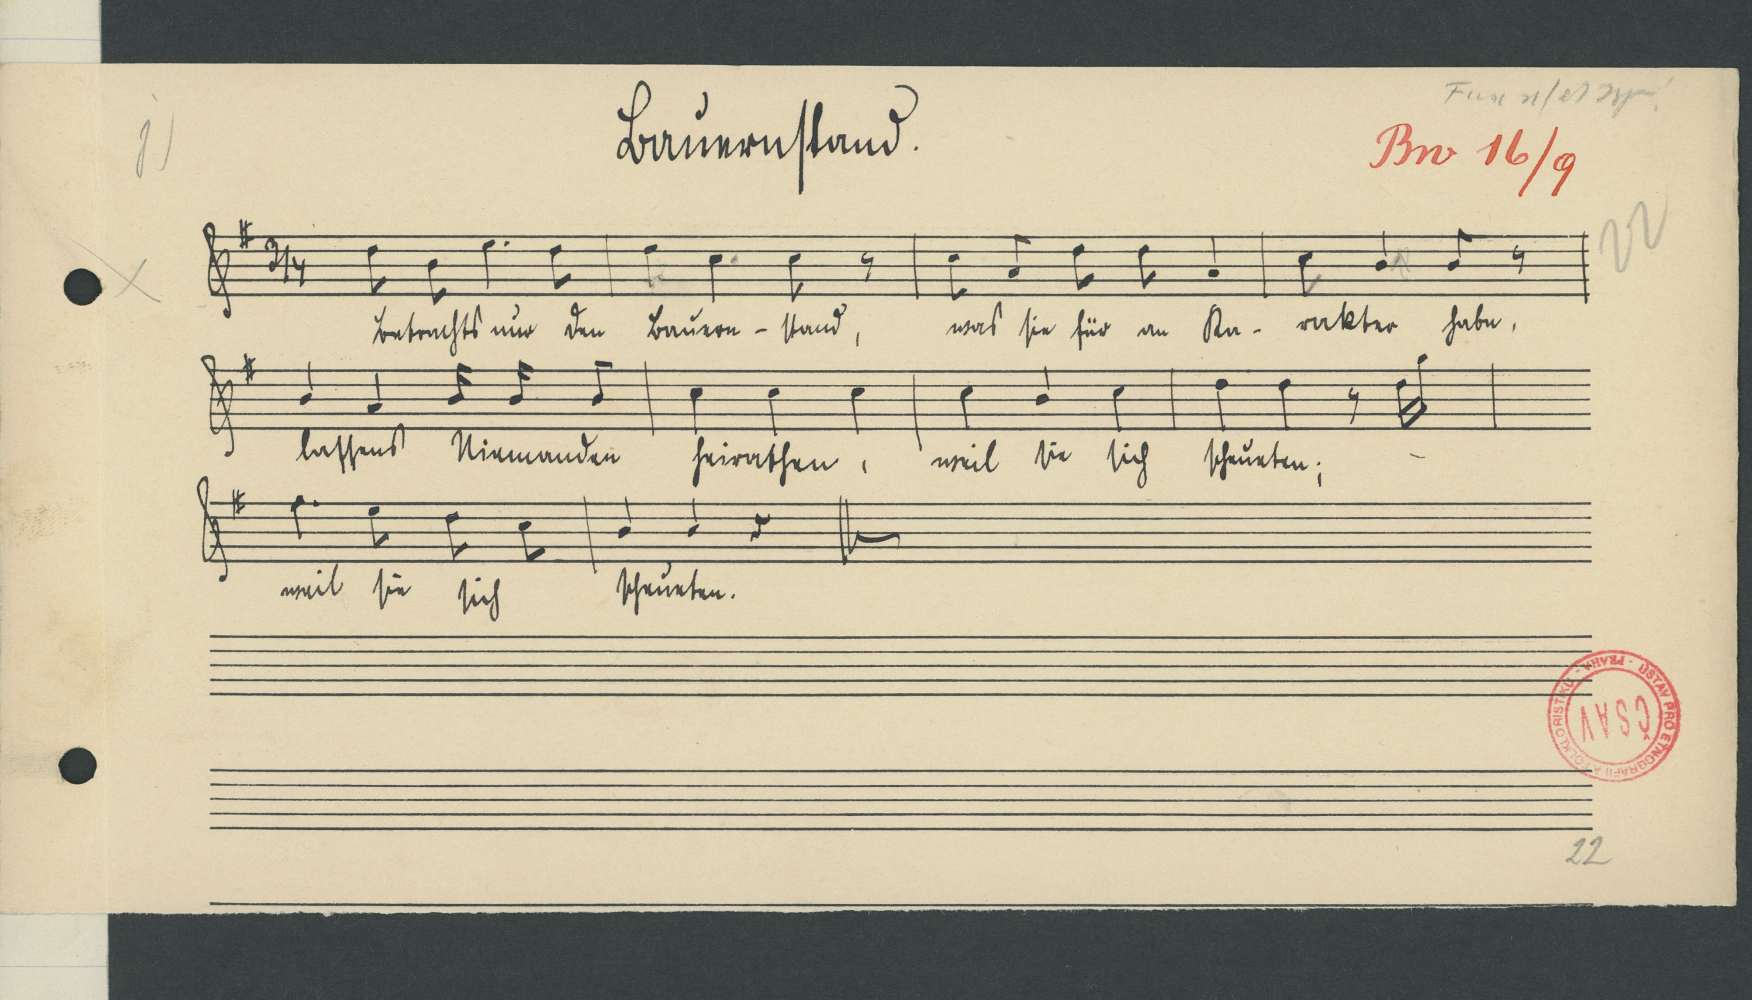 j)
Bauernstand.
Bw 16/9
22
3/4
betrachts nur den Bauern-stand, was sie für an Ka-rakter habn,
lassens Niemanden heirathen, weil sie sich scheueten;
weil sie sich scheueten.
ÚSTAV PRO ETNOGRAFII A FOLKLORISTIKU - PRAHA -
ČSAV
22